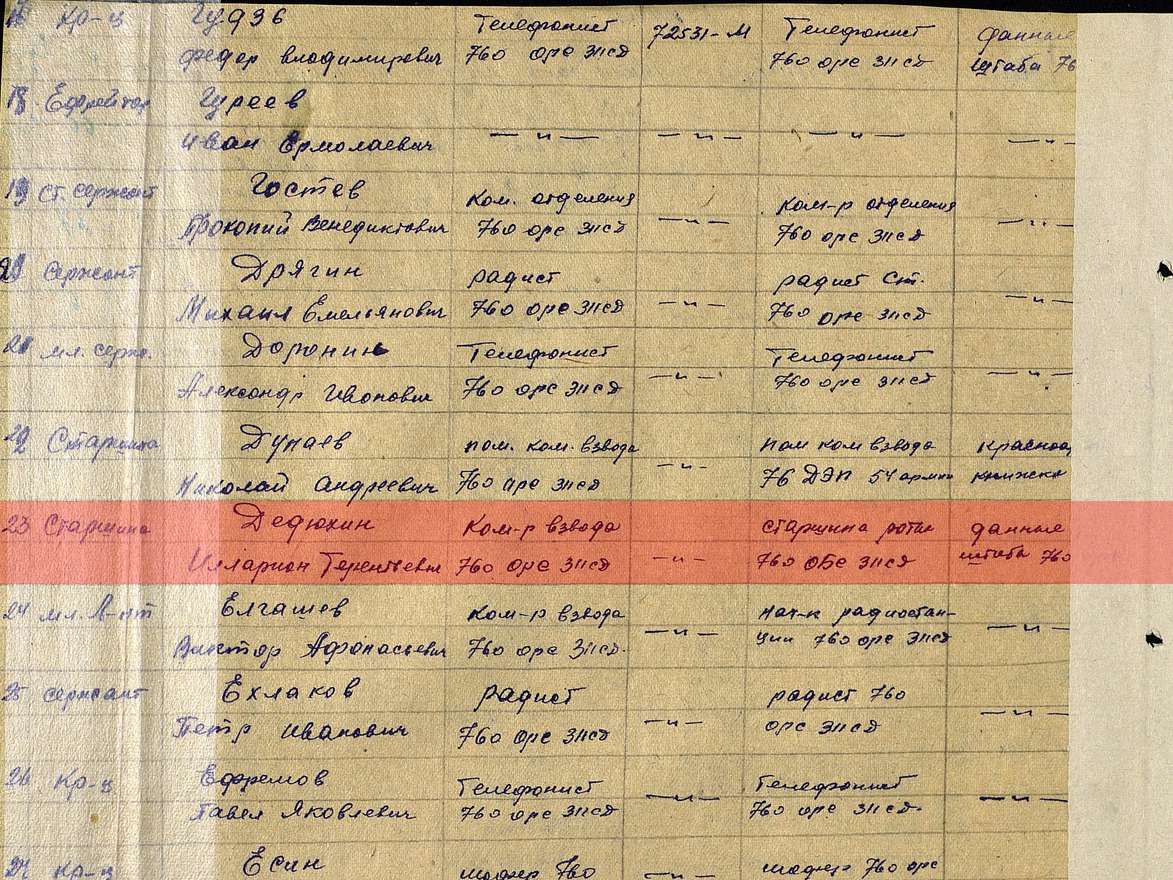 Кр-ц Гудзь Телефонист 72531-М Телефонист данные
Федор Владимирович 760 орс 311сд 760 орс 311сд штаба 76
18 Ефрейтор Гуреев
Иван Ермолаевич —"— —"— —"— —"—
19 Ст. сержант Гостев ком. отделения ком-р отделения
Прокопий Венедиктович 760 орс 311сд —"— 760 орс 311сд —"—
20 Сержант Дрягин радист радист Ст.
Михаил Емельянович 760 орс 311сд —"— 760 орс 311сд —"—
21 мл. серж. Доронин Телефонист Телефонист
Александр Иванович 760 орс 311сд —"— 760 орс 311сд —"—
22 Старшина Дунаев пом. ком. взвода пом ком взвода красноар
Николай Андреевич 760 орс 311сд —"— 76 ДЭП 54 армии книжка
23 Старшина Дедюхин Ком-р взвода старшина роты данные
Илларион Терентьевич 760 орс 311сд —"— 760 обс 311сд штаба 760
24 мл. л-нт Елгашев ком-р взвода нач-к радиостан-
Виктор Афанасьевич 760 орс 311сд. —"— ции 760 орс 311сд —"—
25 сержант Ехлаков радист радист 760
Петр Иванович 760 орс 311сд —"— орс 311сд —"—
26 Кр-ц Ефремов Телефонист Телефонист
Павел Яковлевич 760 орс 311сд —"— 760 орс 311сд. —"—
27 Кр-ц Есин 760 —"— 760 орс